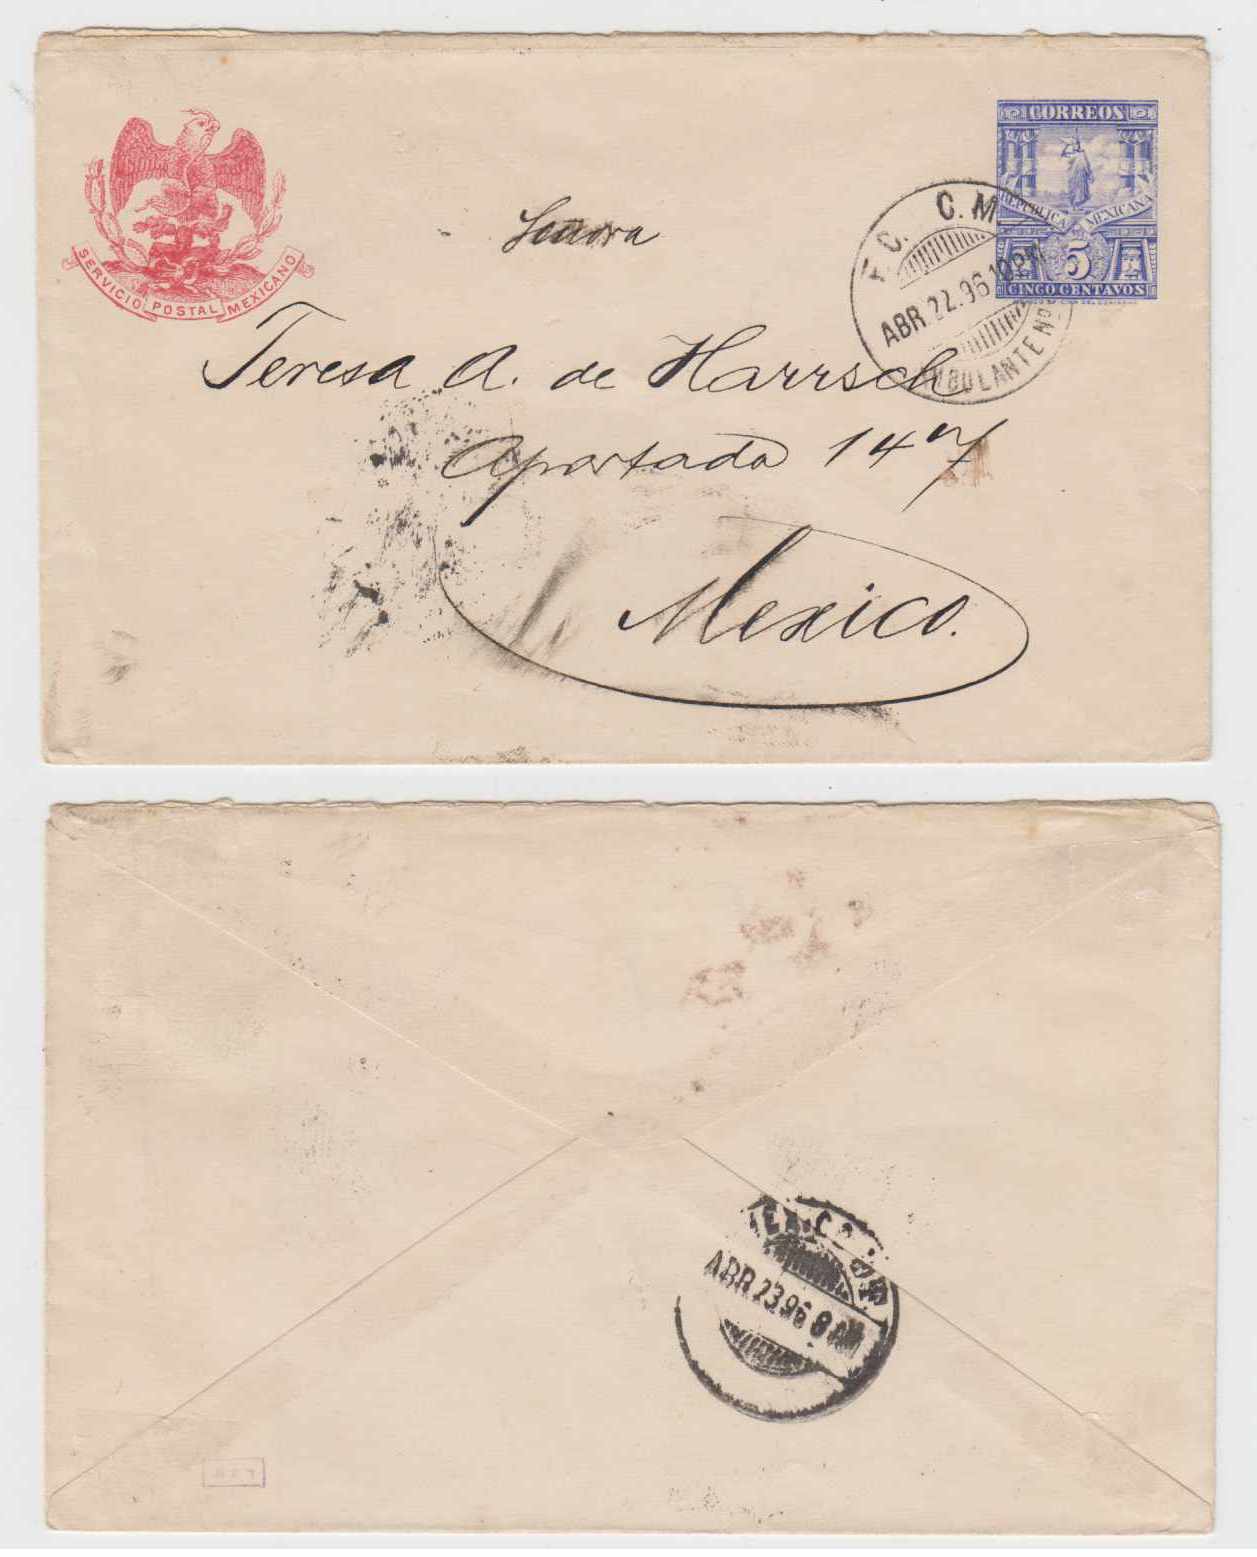 SERVICIO POSTAL MEXICANO
CORREOS
REPUBLICA MEXICANA
5
CINCO CENTAVOS
F. C. C. M.
ABR. 22. 96 10 PM
AMBULANTE Nº
Señora
Teresa A. de Harrsch
Apartado 147
Mexico.
MEXICO
ABR 23 96 8 AM